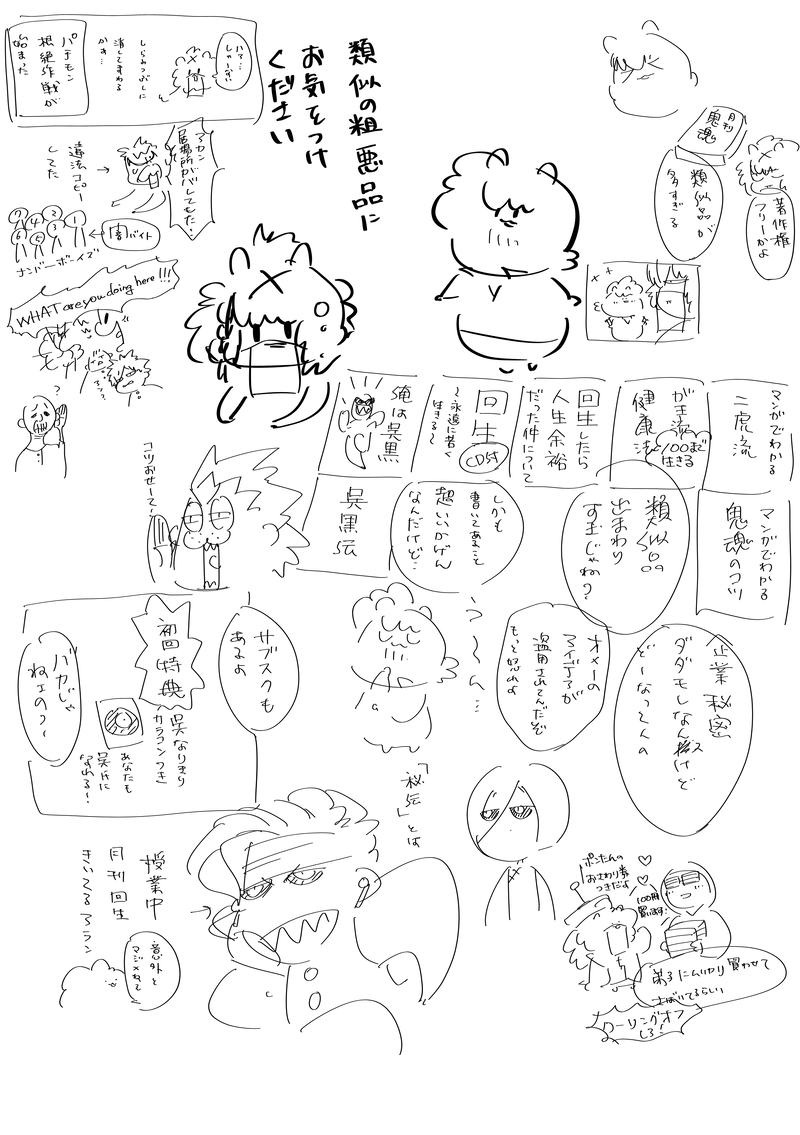 類似の粗悪品に
お気をつけ
ください
月刊
鬼魂
類似品が
多すぎる
著作権
フリーかよ
ハァ…
しゃーず
しらみつぶしに
消してまわる
かす…
パチモン
根絶作戦が
始まった
アカン
居場所がバレしてもた!
違法コピー
してた
闇バイト
1
2
3
4
5
6
7
ナンバーボーイズ
WHAT are you doing here!!!
?
マンガでわかる
二虎流
が王流
健康法
100まで
生きる
回生したら
人生余裕
だった件について
回生
CD付
〜永遠に若く
生きる〜
俺は呉黒
マンガでわかる
鬼魂のコツ
類似品
出まわり
すぎじゃね?
しかも
書いてあること
超いいかげん
なんだけど…
呉黒伝
コツおせーて!
企業秘密
ダダモレなんですけど
どーなってんの
オメーの
アイデアが
盗用されてんだぞ
もっと怒れよ
う〜〜ん…
サブスクも
あるよ
初回特典
呉なりきり
カラコンつき
あなたも
呉氏に
なれる!
バカじゃ
ねェの?
「秘伝」とは
授業中
月刊回生
きいてるアラン
意外と
マジメかて
ポンたんの
おさわり券
つきだよ
100冊
買います!
弟子にムリヤリ買わせて
さばいてるらしい
クーリングオフ
しろ!